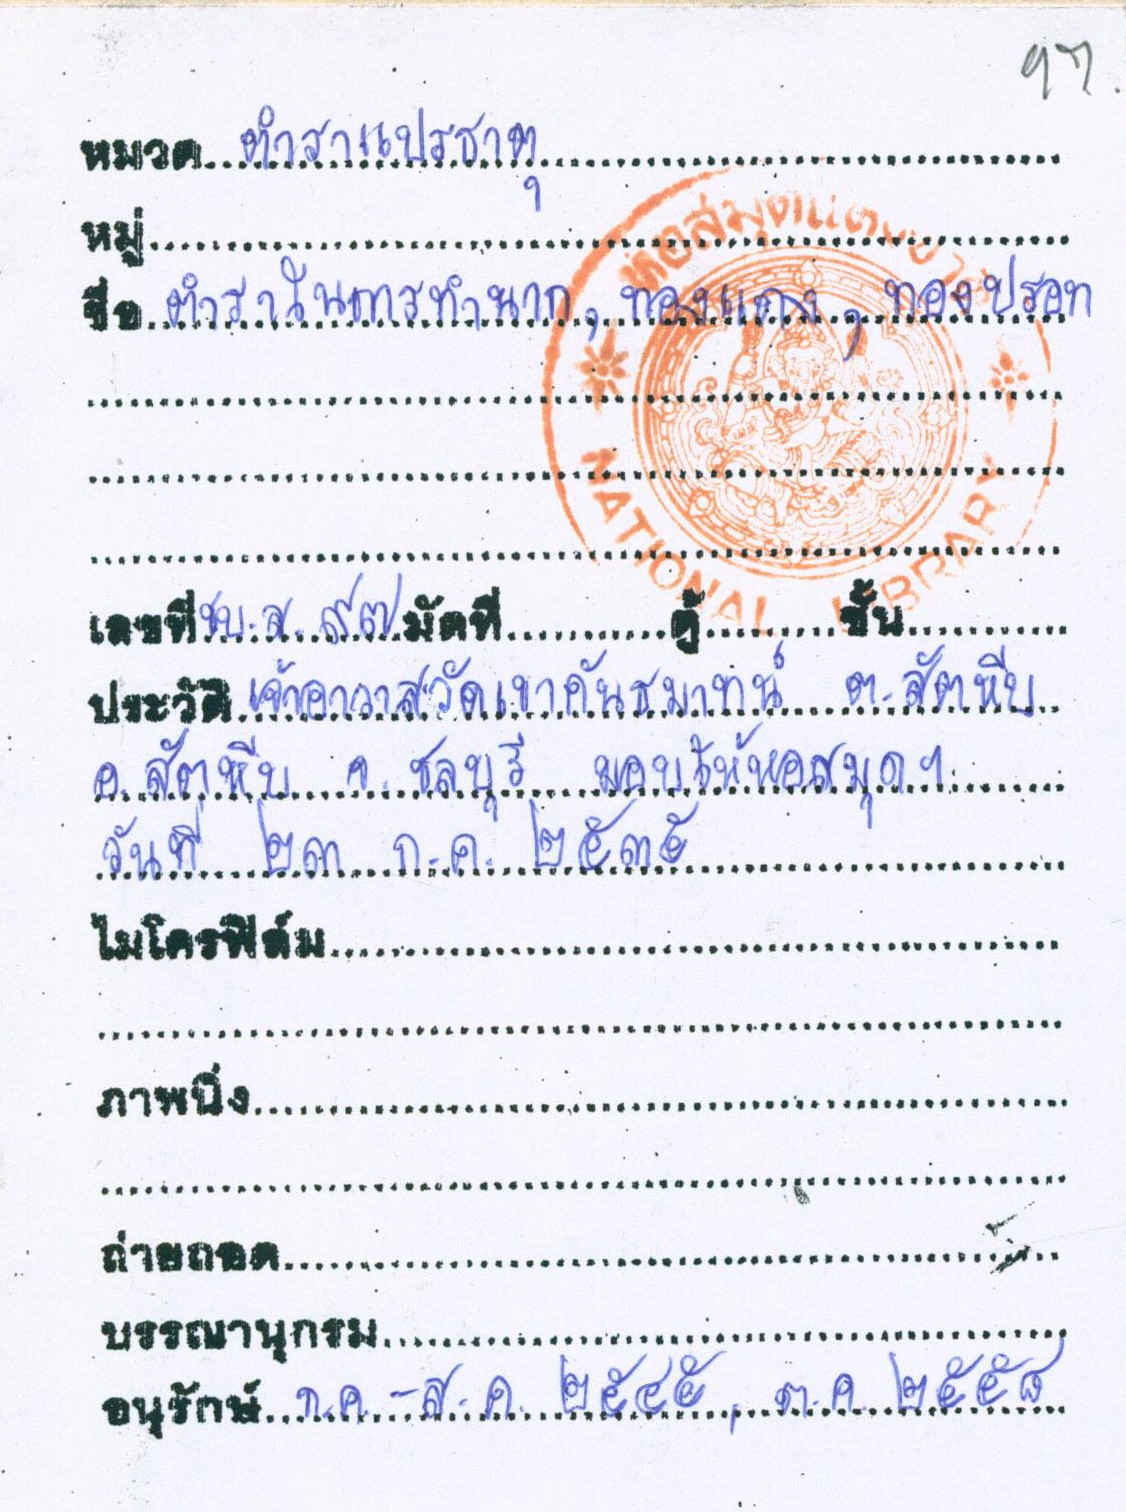 ๑๗.
หมวด ตำราแปรธาตุ
หมู่
หอสมุดแห่งชาติ
ชื่อ ตำราในการทำนาก, ทองแดง, ทองปรอท
NATIONAL LIBRARY
เลขที่ ชบ.ส. ๙๗ มัดที่ ตู้ ชั้น
ประวัติ เจ้าอาวาสวัดเขาคันธมาทน์ ต.สัตหีบ
อ.สัตหีบ จ.ชลบุรี มอบให้หอสมุดฯ
วันที่ ๒๓ ก.ค. ๒๕๓๕
ไมโครฟิล์ม
ภาพนิ่ง
ถ่ายถอด
บรรณานุกรม
อนุรักษ์ ก.ค.-ส.ค. ๒๕๔๕, ต.ค. ๒๕๕๘